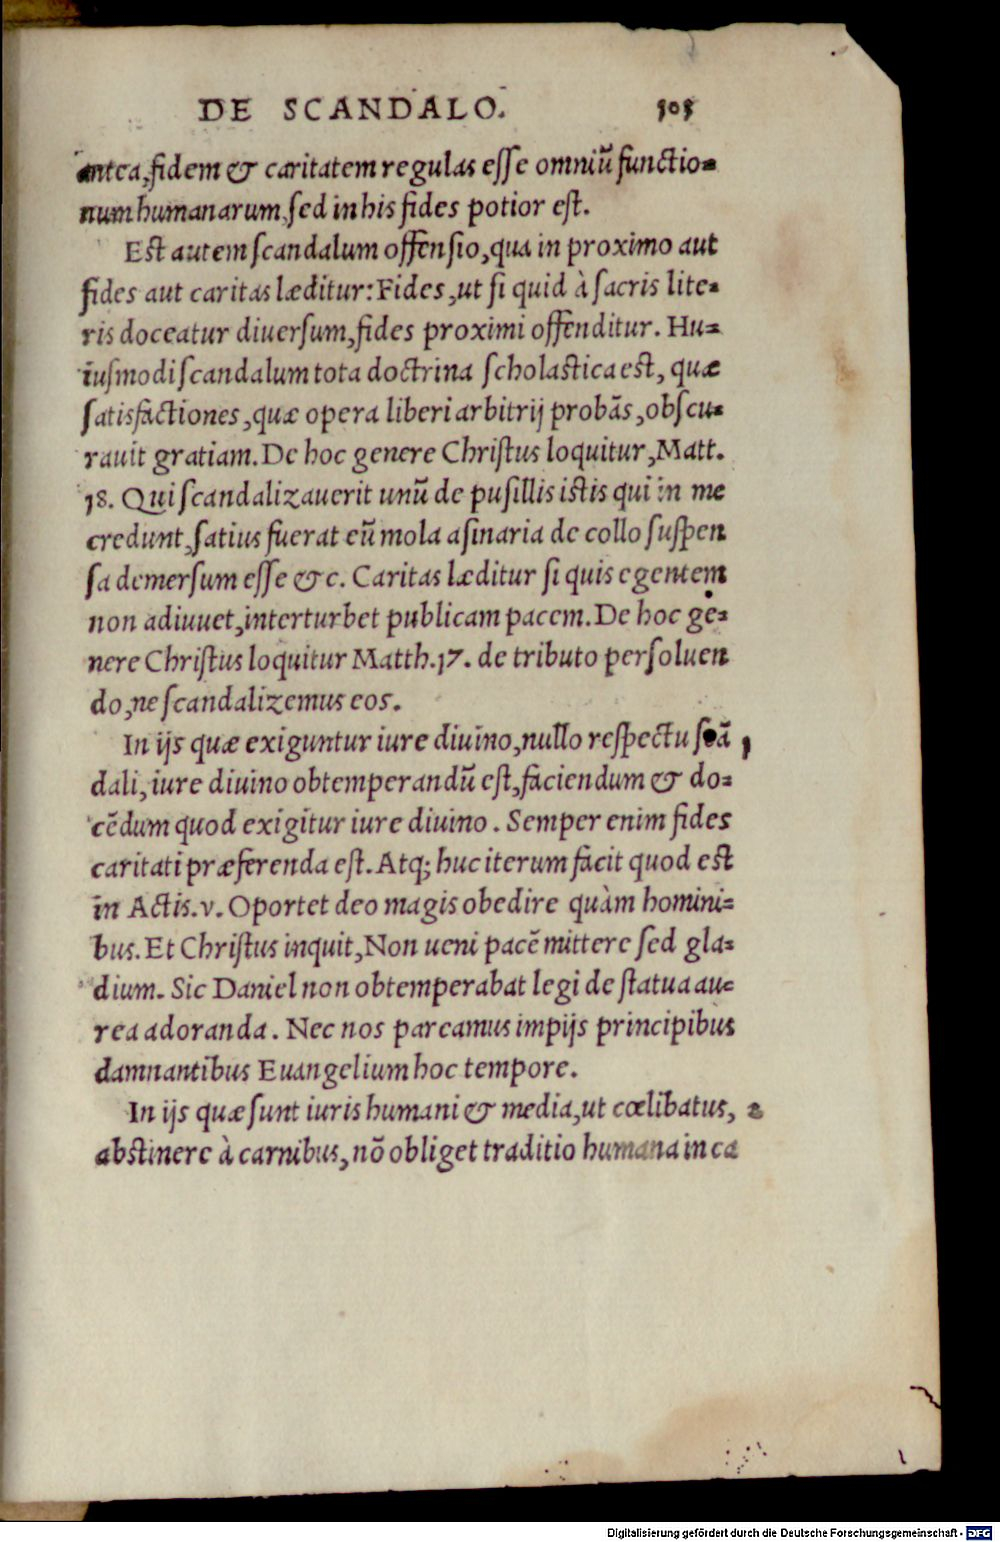 DE SCANDALO. 305
antea, fidem & caritatem regulas esse omniū functio-
num humanarum, sed in his fides potior est.
Est autem scandalum offensio, qua in proximo aut
fides aut caritas læditur: Fides, ut si quid à sacris lite-
ris doceatur diuersum, fides proximi offenditur. Hu-
iusmodi scandalum tota doctrina scholastica est, quæ
satisfactiones, quæ opera liberi arbitrij probās, obscu-
rauit gratiam. De hoc genere Christus loquitur, Matt.
18. Qui scandalizauerit unū de pusillis istis qui in me
credunt, satius fuerat eū mola asinaria de collo suspen
sa demersum esse &c. Caritas læditur si quis egentem
non adiuuet, interturbet publicam pacem. De hoc ge-
nere Christus loquitur Matth. 17. de tributo persoluen
do, ne scandalizemus eos.
In ijs quæ exiguntur iure diuino, nullo respectu scā 1
dali, iure diuino obtemperandū est, faciendum & do-
cēdum quod exigitur iure diuino. Semper enim fides
caritati præferenda est. Atq; huc iterum facit quod est
in Actis. v. Oportet deo magis obedire quàm homini-
bus. Et Christus inquit, Non ueni pacē mittere sed gla-
dium. Sic Daniel non obtemperabat legi de statua au-
rea adoranda. Nec nos parcamus impijs principibus
damnantibus Euangelium hoc tempore.
In ijs quæ sunt iuris humani & media, ut cœlibatus, 2
abstinere à carnibus, nō obliget traditio humana in ca
Digitalisierung gefördert durch die Deutsche Forschungsgemeinschaft - DFG